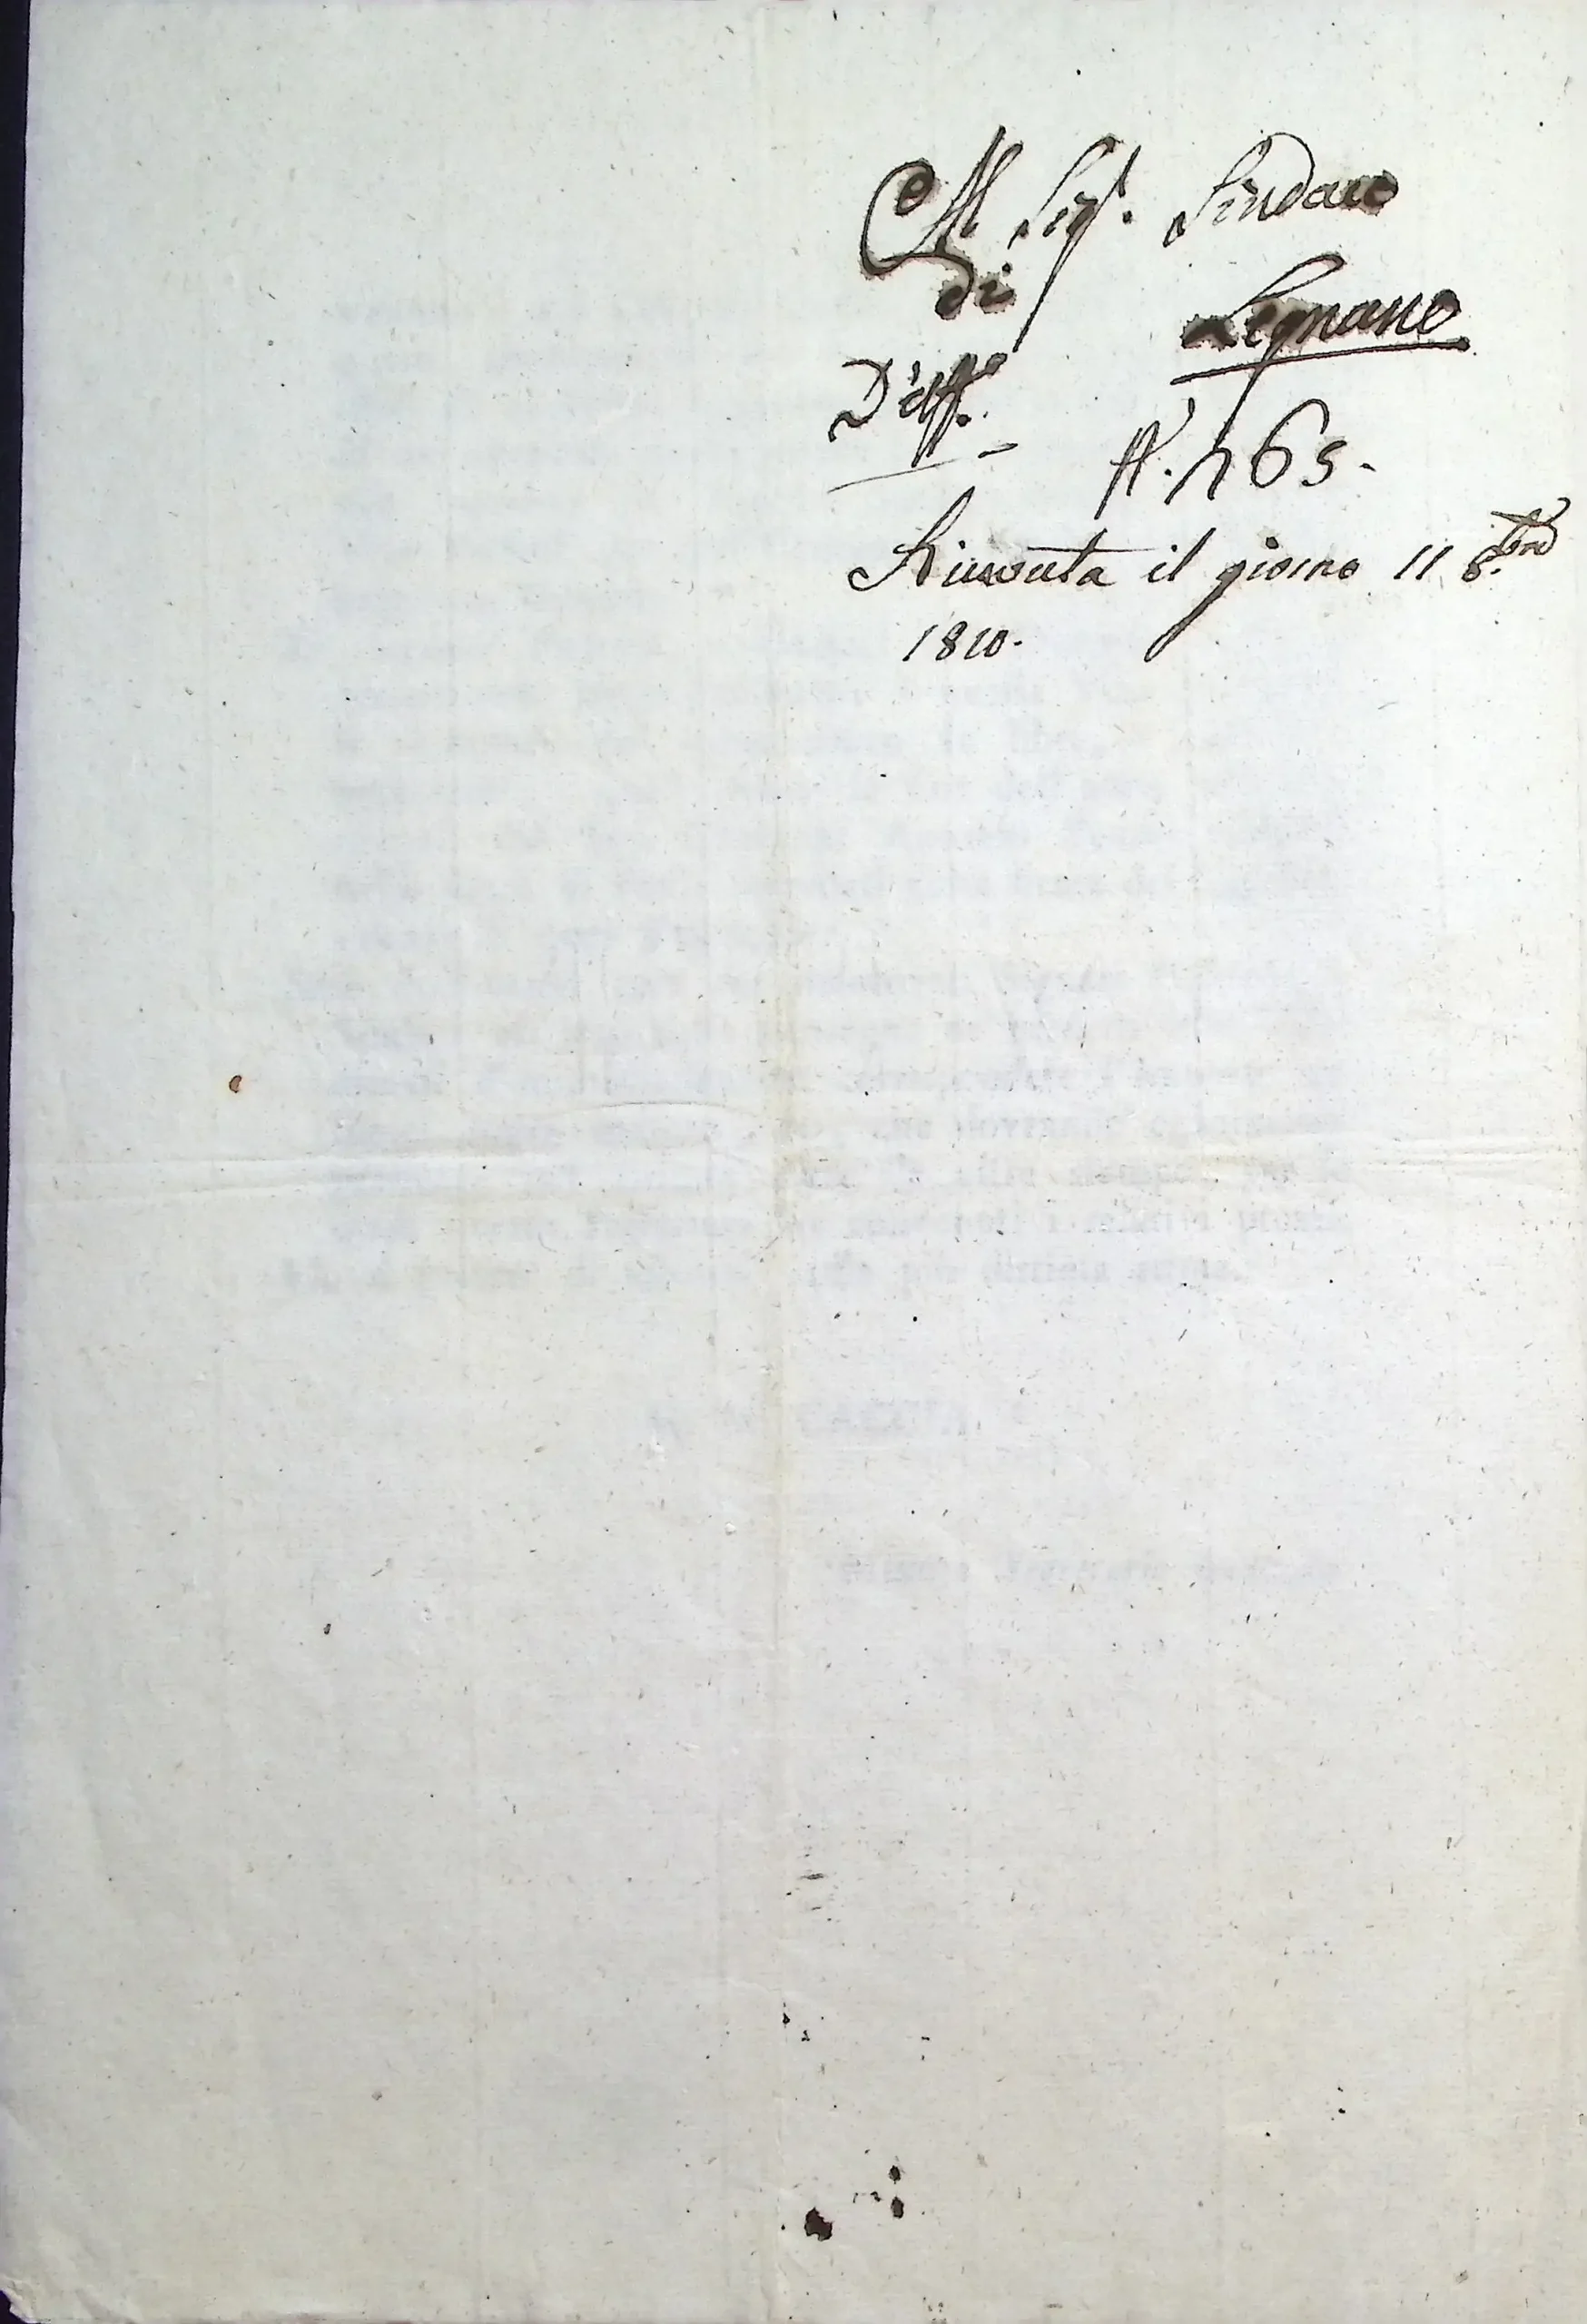 Al Sig.r Sindaco
di
Legnano
D'Uff.o
N. 465.
Ricevuta il giorno 11 8.bre
1810.